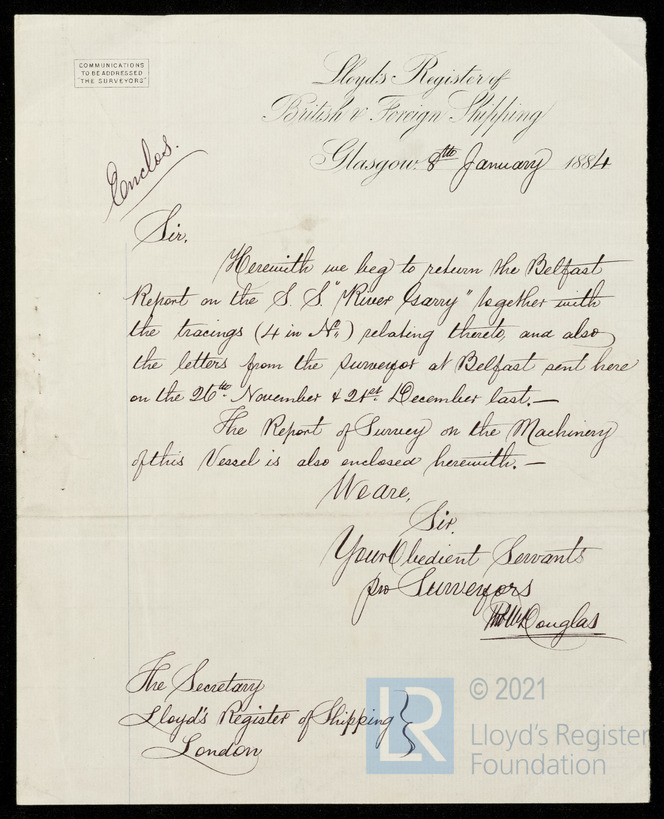 COMMUNICATIONS
TO BE ADDRESSED
"THE SURVEYORS"
Lloyd's Register of
British & Foreign Shipping
Glasgow. 8th January 1884
Enclos.
Sir,
Herewith we beg to return the Belfast
Report on the S. S "River Garry" together with
the tracings (4 in No.) relating thereto, and also
the letters from the Surveyor at Belfast sent here
on the 26th November & 21st December last.—
The Report of Survey on the Machinery
of this Vessel is also enclosed herewith.—
We are,
Sir,
Your Obedient Servants
pro Surveyors
Douglas
The Secretary
Lloyd's Register of Shipping
London
LR
© 2021
Lloyd's Register
Foundation